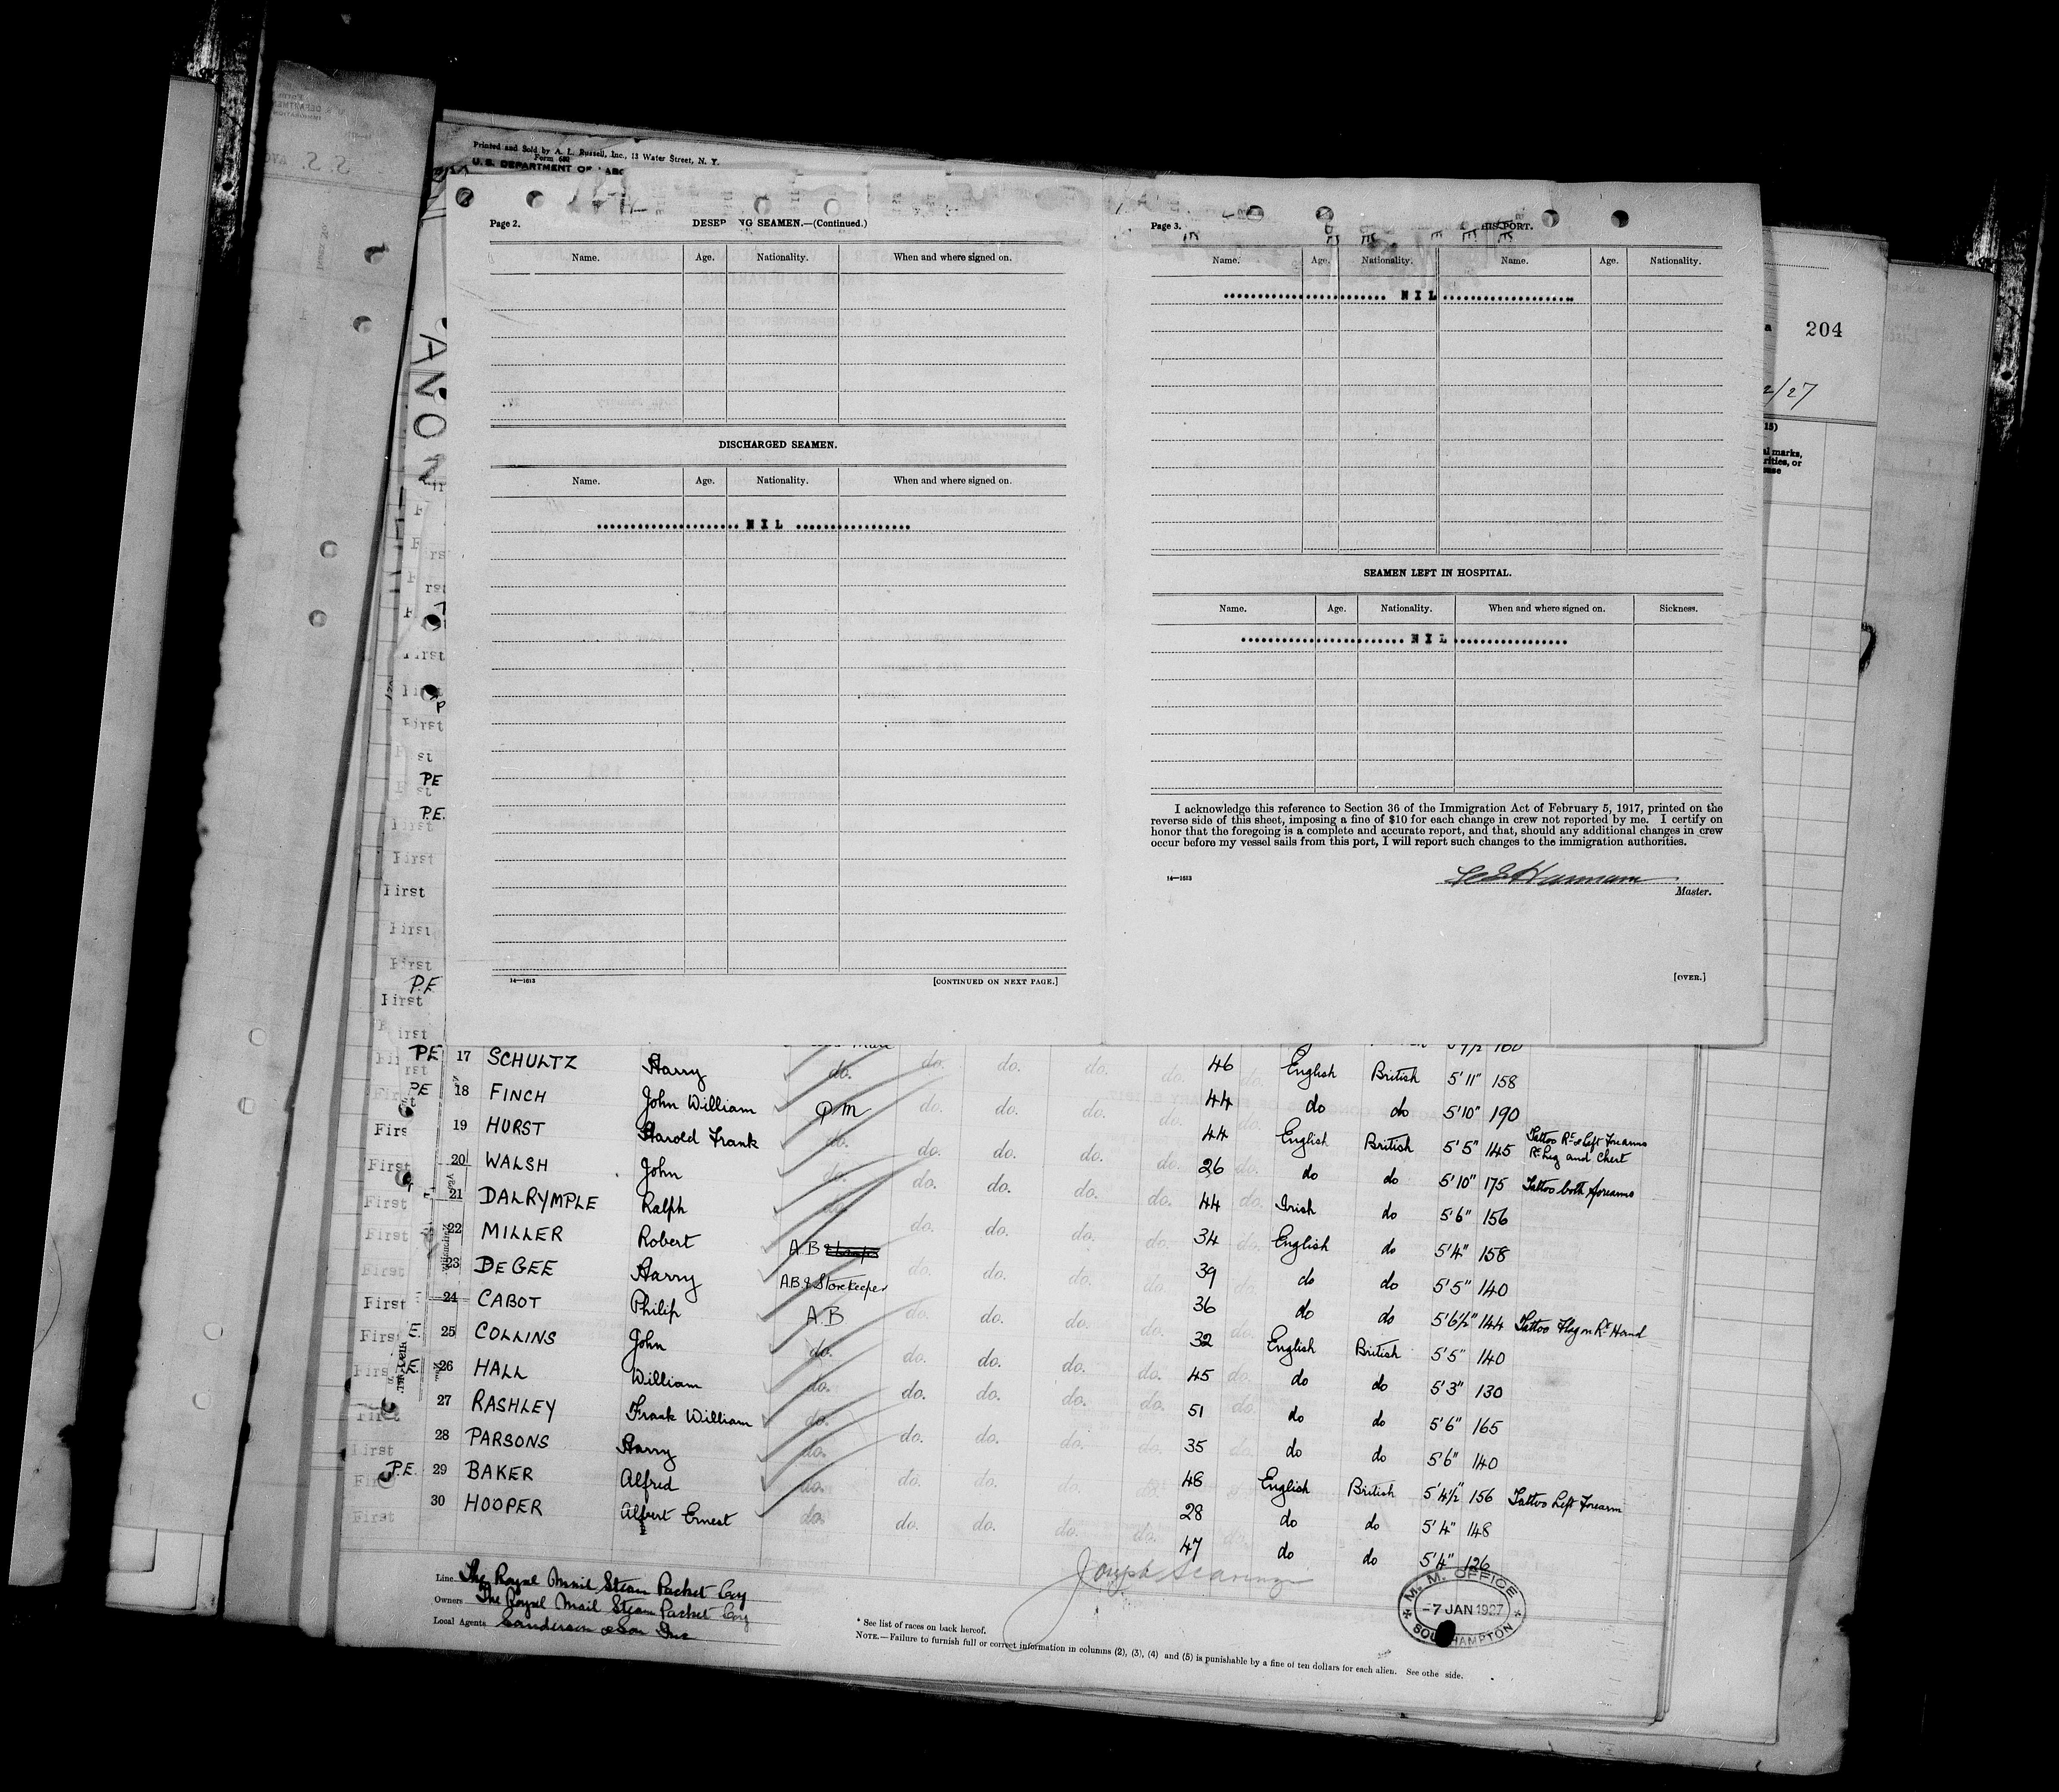 Printed and Sold by A. L. Russell, Inc., 13 Water Street, N. Y.
Form 689
U. S. DEPARTMENT OF LABO
204
2/27
Page 2.
DESER NG SEAMEN.—(Continued.)
Name. Age. Nationality. When and where signed on.
DISCHARGED SEAMEN.
Name. Age. Nationality. When and where signed on.
..................... NIL .................
14—1613
[CONTINUED ON NEXT PAGE.]
Page 3.
HIS PORT.
Name. Age. Nationality. Name. Age. Nationality.
........................ NIL ....................
SEAMEN LEFT IN HOSPITAL.
Name. Age. Nationality. When and where signed on. Sickness.
........................ NIL .................
I acknowledge this reference to Section 36 of the Immigration Act of February 5, 1917, printed on the
reverse side of this sheet, imposing a fine of $10 for each change in crew not reported by me. I certify on
honor that the foregoing is a complete and accurate report, and that, should any additional changes in crew
occur before my vessel sails from this port, I will report such changes to the immigration authorities.
14—1613
Master.
[OVER.]
PE 17 SCHULTZ Harry do. do. do. do. do. 46 do. English British 5'11" 158
PE 18 FINCH John William Q M do. do. do. do. 44 do. do do 5'10" 190
19 HURST Harold Frank do. do. do. do. do. 44 English British 5'5" 145 Tattoo Rt & Left Forearms
Rt Leg and Chest
20 WALSH John do. do. do. do. do. 26 do. do do 5'10" 175 Tattoo both forearms
21 DALRYMPLE Ralph do. do. do. do. do. 44 do. Irish do 5'6" 156
22 MILLER Robert A B do. do. do. do. 34 do. English do 5'4" 158
23 DeGEE Harry AB & Storekeeper do. do. do. do. 39 do. do do 5'5" 140
24 CABOT Philip A.B do. do. do. do. 36 do. do do 5'6½" 144 Tattoo Flag on Rt Hand
25 COLLINS John do. do. do. do. do. 32 do. English British 5'5" 140
26 HALL William do. do. do. do. do. 45 do. do do 5'3" 130
27 RASHLEY Frank William do. do. do. do. do. 51 do. do do 5'6" 165
28 PARSONS Harry do. do. do. do. do. 35 do. do do 5'6" 140
P.E. 29 BAKER Alfred do. do. do. do. do. 48 English British 5'4½" 156 Tattoo Left Forearm
30 HOOPER Albert Ernest do. do. do. do. do. 28 do. do do 5'4" 148
47 do do 5'4" 126
Line The Royal Mail Steam Packet Coy
Owners The Royal Mail Steam Packet Coy
Local Agents Sanderson & Son Inc
* See list of races on back hereof.
NOTE.—Failure to furnish full or correct information in columns (2), (3), (4) and (5) is punishable by a fine of ten dollars for each alien. See othe side.
M. M. OFFICE
-7 JAN 1927
SOUTHAMPTON